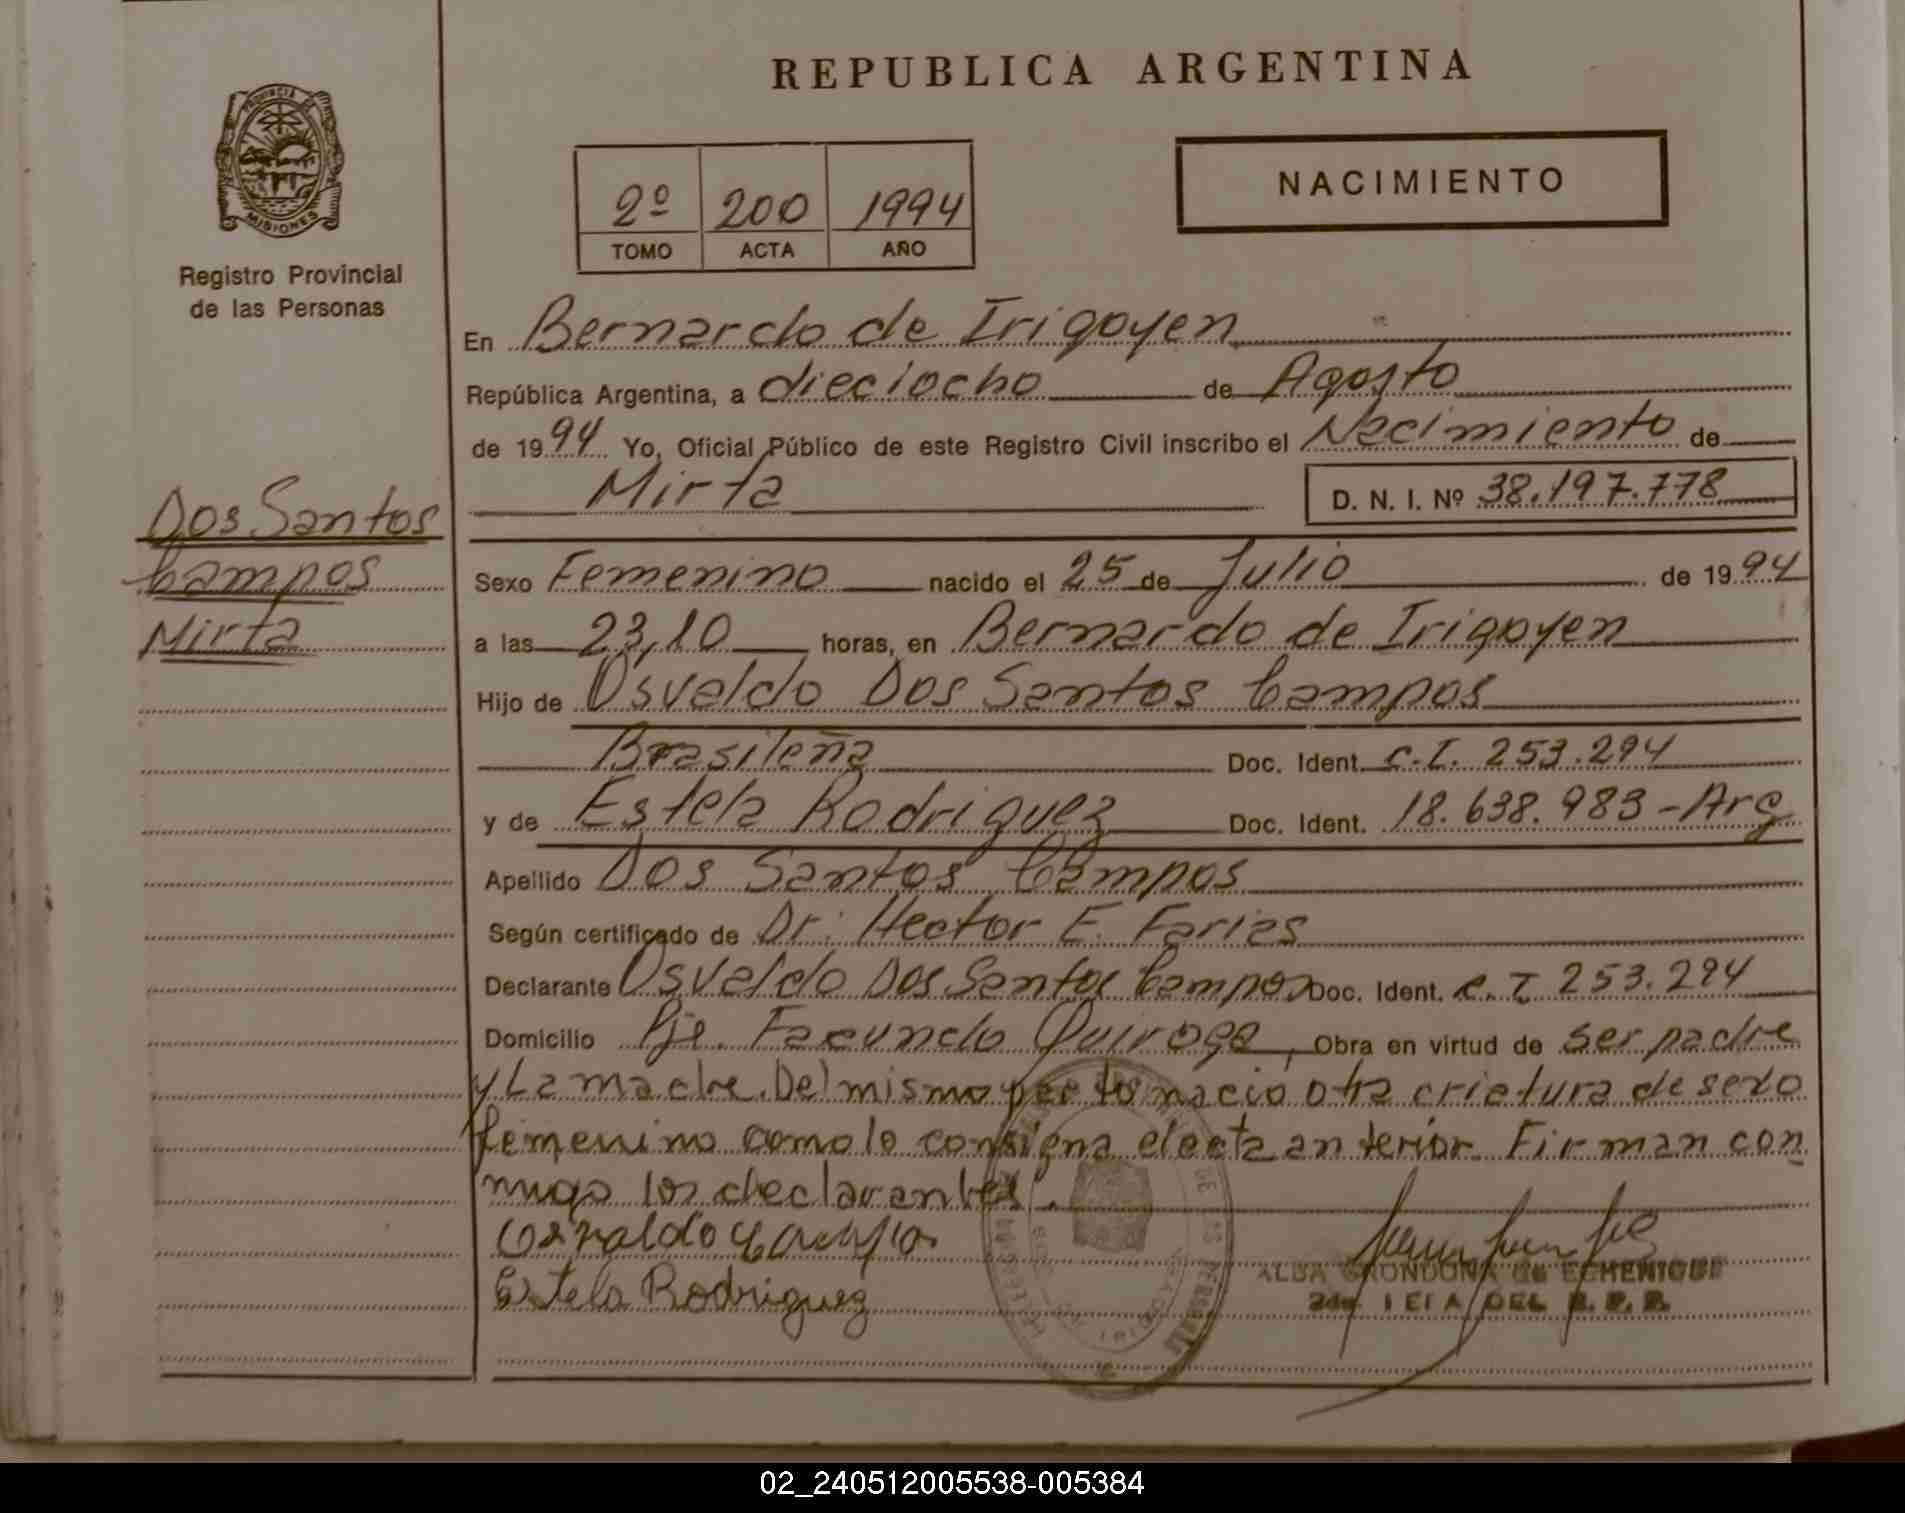 REPUBLICA ARGENTINA
PROVINCIA DE
MISIONES
Registro Provincial
de las Personas
2º 200 1994
TOMO ACTA AÑO
NACIMIENTO
En Bernardo de Irigoyen
República Argentina, a dieciocho de Agosto
de 1994 Yo, Oficial Público de este Registro Civil inscribo el Nacimiento de
Mirta D. N. I. Nº 38.197.778
Dos Santos
Campos
Mirta
Sexo Femenino nacido el 25 de Julio de 1994
a las 23,10 horas, en Bernardo de Irigoyen
Hijo de Osvaldo Dos Santos Campos
Brasileña Doc. Ident. C.I. 253.294
y de Estela Rodriguez Doc. Ident. 18.638.983 - Arg
Apellido Dos Santos Campos
Según certificado de Dr. Hector E. Farias
Declarante Osvaldo Dos Santos Campos Doc. Ident. C.I. 253.294
Domicilio Pje. Facundo Quiroga, Obra en virtud de ser padre
y La madre. Del mismo parto nacio otra criatura de sexo
femenino como lo consigna el acta anterior. Firman con
migo los declarantes.
Osvaldo Campos
Estela Rodriguez
ALBA GRONDONA de ECHENIQUE
DEL R. P. P.
02_240512005538-005384